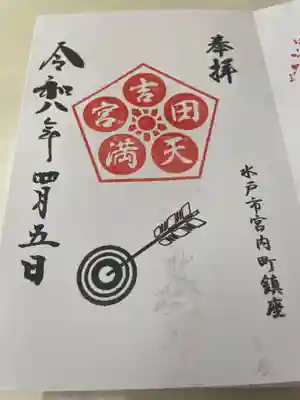 奉拝
吉田天満宮
水戸市宮内町鎮座
令和八年四月五日